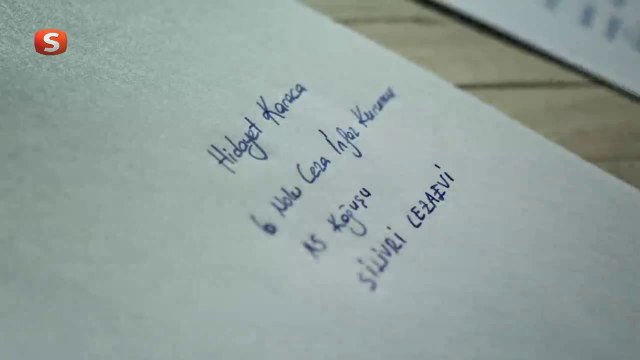 S
Hidayet Karaca
6 Nolu Ceza İnfaz Kurumu
A5 Koğuşu
SİLİVRİ CEZAEVİ